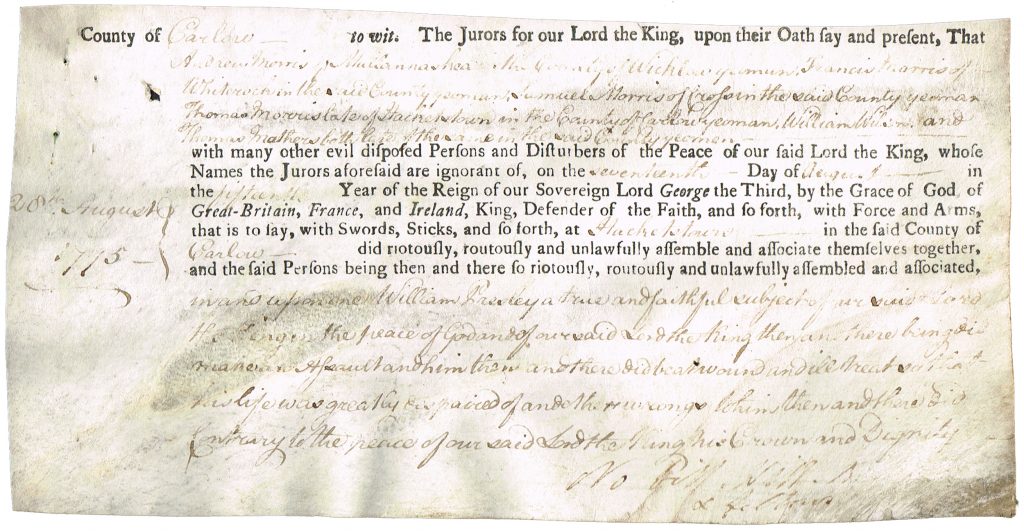 County of Carlow to wit. The Jurors for our Lord the King, upon their Oath say and present, That
Andrew Morris of in the County of Wicklow yeoman, Francis Morris of
in the said County yeoman, Samuel Morris of in the said County yeoman
Thomas Morris late of Hacketstown in the County of Carlow yeoman, William and
Thomas both late of the same in the said County yeomen
with many other evil disposed Persons and Disturbers of the Peace of our said Lord the King, whose
Names the Jurors aforesaid are ignorant of, on the seventeenth Day of August in
the fifteenth Year of the Reign of our Sovereign Lord George the Third, by the Grace of God, of
28th August
Great-Britain, France, and Ireland, King, Defender of the Faith, and so forth, with Force and Arms,
that is to say, with Swords, Sticks, and so forth, at Hacketstown in the said County of
1775
Carlow did riotously, routously and unlawfully assemble and associate themselves together,
and the said Persons being then and there so riotously, routously and unlawfully assembled and associated,
in and upon one William Presley a true and faithful subject of our said Lord
the King in the peace of God and of our said Lord the King then and there being did
make an Assault and him then and there did beat wound and ill treat so that
his life was greatly despaired of and other wrongs to him then and there did
Contrary to the peace of our said Lord the King his Crown and Dignity
No Bill